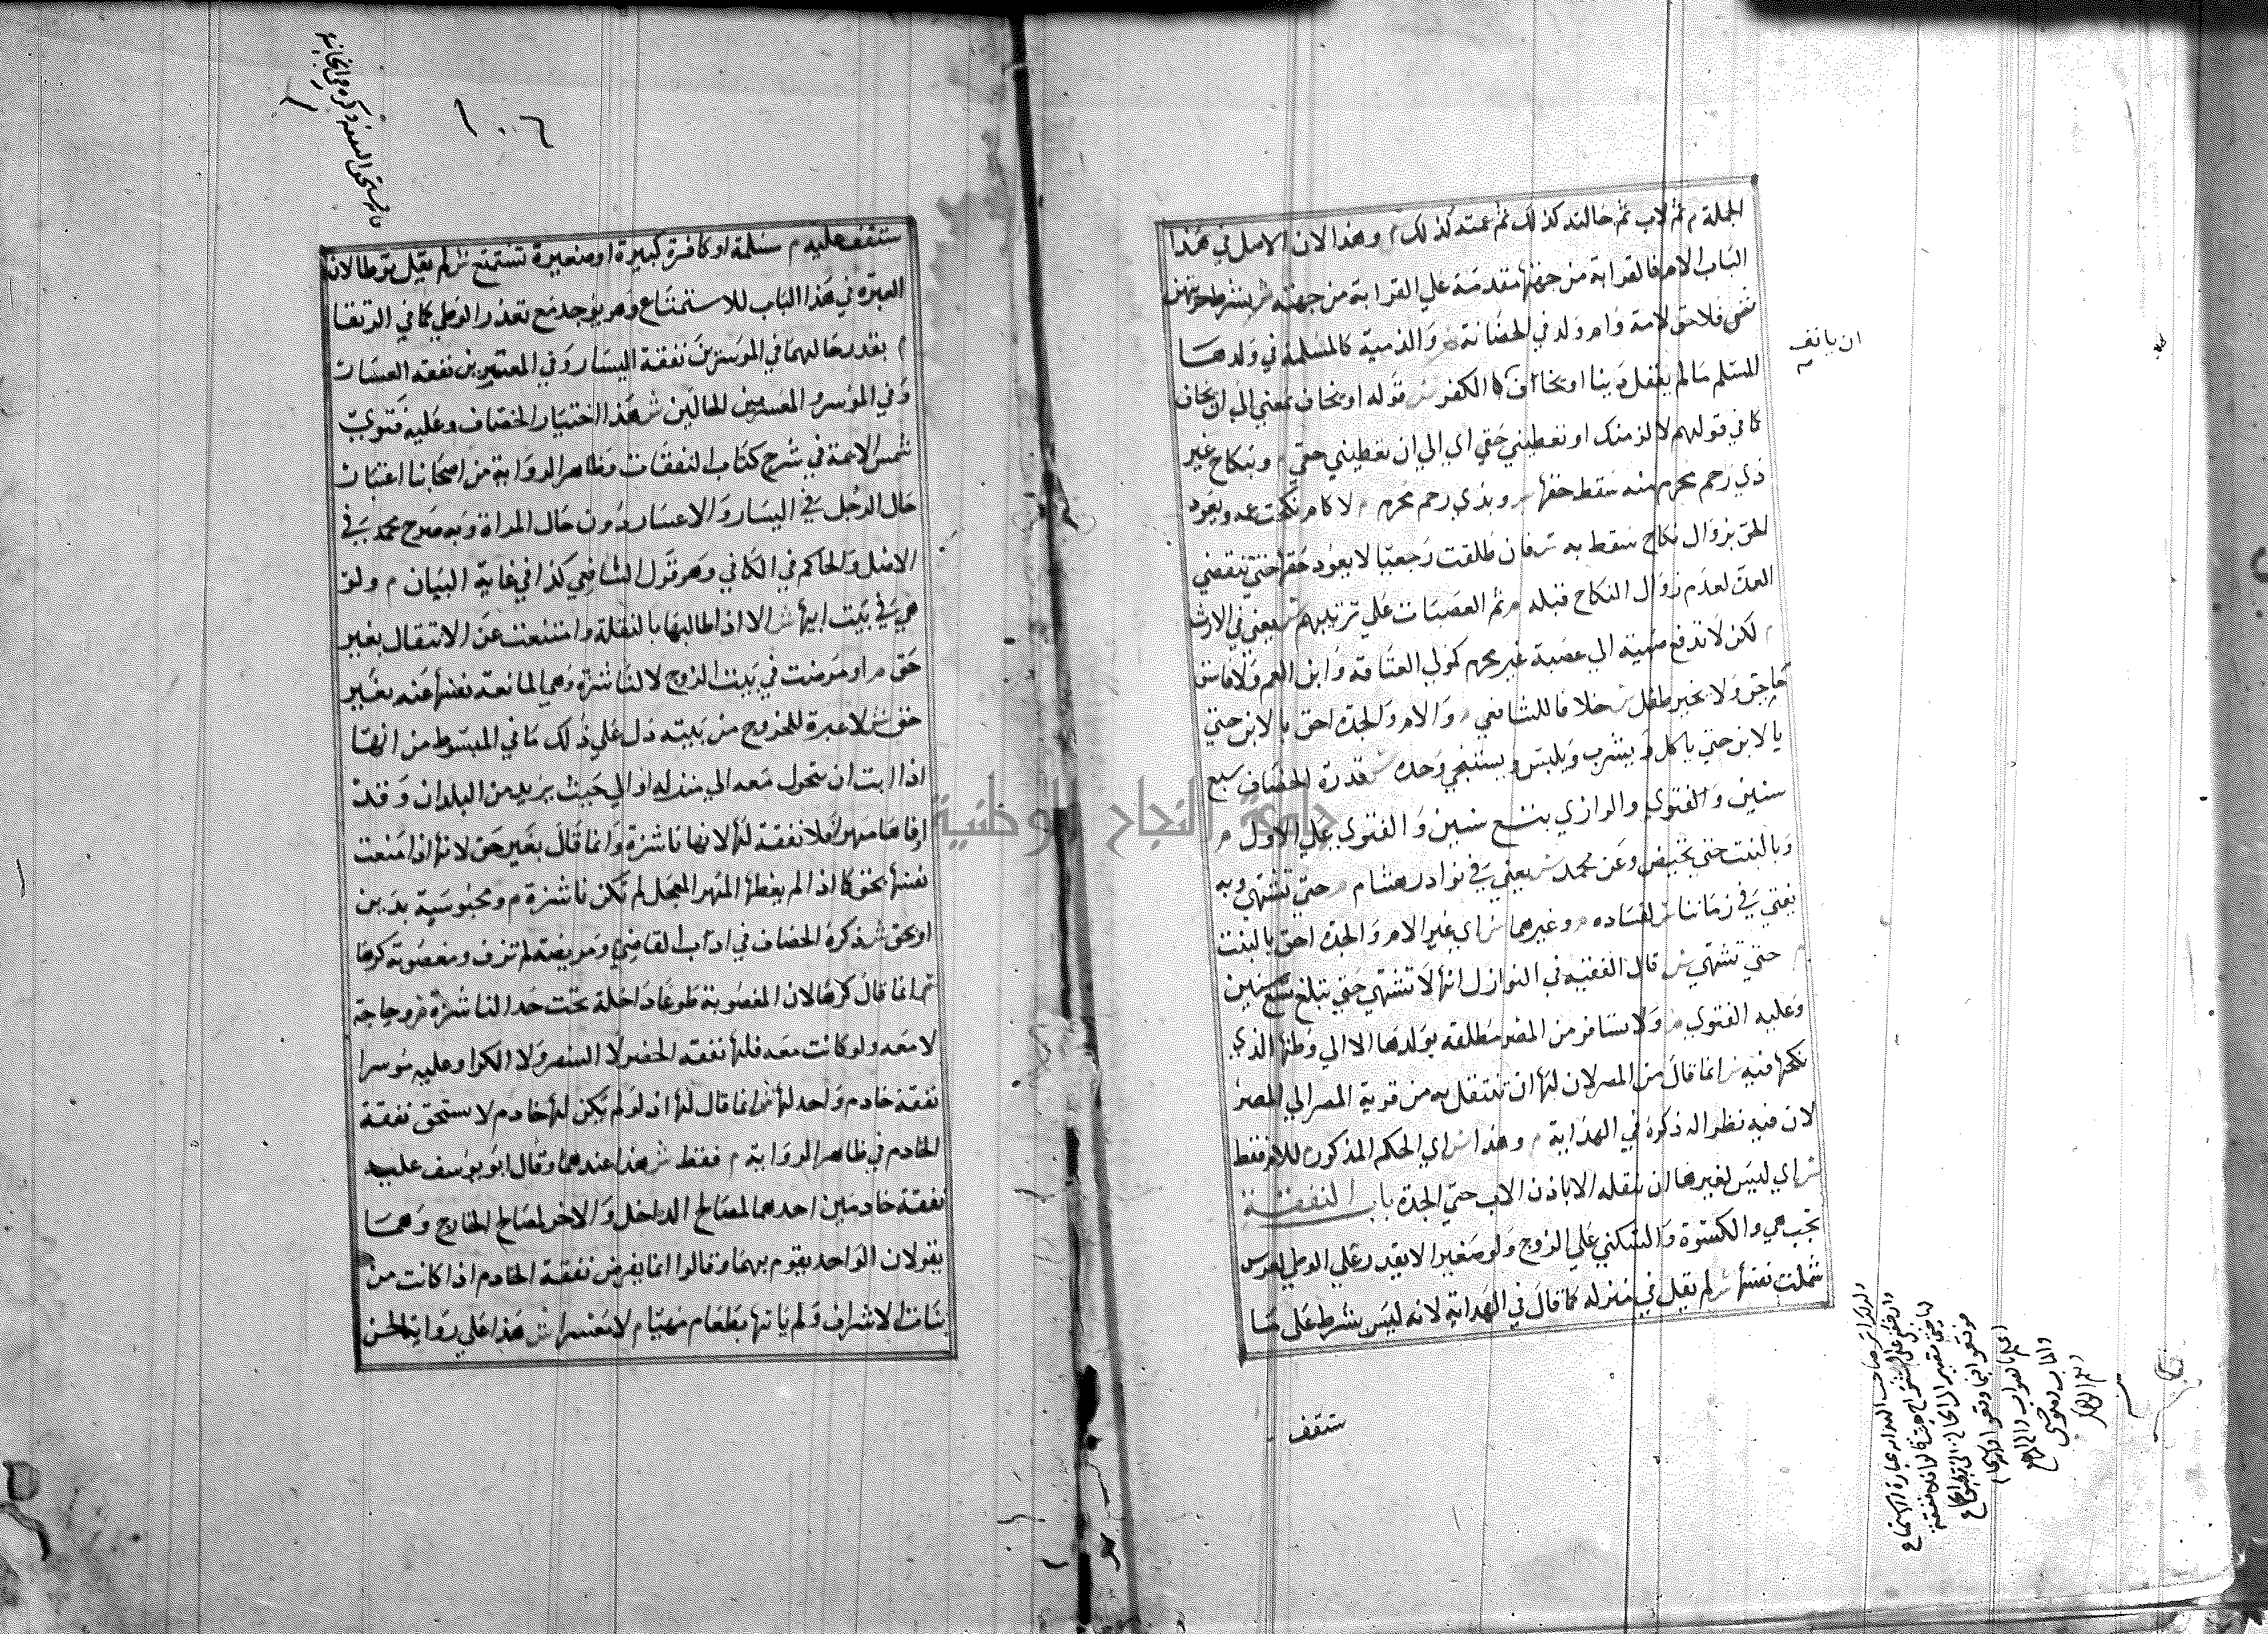 الجملة م ثم لاب ثم خالته كذلك ثم عمته كذلك م وهذا لان الاصل في هذا
الباب الام فالقرابة من جهتها مقدمة علي القرابة من جهته ش بشرط حريتهن
فلا حق لامة وام ولد في الحضانة والذمية كالمسلمة في ولدها
المسلم مالم يعقل دينا او يخاف الكفر ش قوله او يخاف بمعني الي ان يخاف
كما في قولهم لالزمنك او تعطيني حقي اي الي ان تعطيني حقي م وبنكاح غير
ذي رحم محرم منه سقط حقها م وبذي رحم محرم م لا كام نكحت عمه ويعود
الحق بزوال نكاح سقط به ش فان طلقت رجعيا لا يعود حقها حتي تنقضي
العدة لعدم زوال النكاح قبله م ثم العصبات علي ترتيبهم ش يعني في الارث
م لكن لا تدفع صبية الي عصبة غير محرم كمولي العتاقة وابن العم ولا فاسق
ماجن ولا يخير طفل ش خلافا للشافعي م والام والجدة احق بالابن حتي
يا لابن حتي ياكل ويشرب ويلبس ويستنجي وحده ش قدره الخصاف سبع
سنين والفتوي والرازي بتسع سنين والفتوي علي الاول م
وبالبنت حتي تحيض وعن محمد ش يعني في نوادر هشام م حتي تشتهي وبه
يفتي في زماننا ش لفساده م وغيرهما ش اي غير الام والجدة احق بالبنت
م حتي تشتهي ش قال الفقيه في النوازل انها لا تشتهي حتي تبلغ تسع سنين
وعليه الفتوي م ولا تسافر من المصر مطلقة بولدها الا الي وطنها الذي
نكحها فيه ش انما قال من المصر لان لها ان تنتقل به من قرية المصر الي المصر
لان فيه نظرا له ذكره في الهداية م وهذا ش اي الحكم المذكور م للام فقط
ش اي ليس لغيرها ان تنقله الا باذن الاب حتي الجدة باب النفقة
تجب هي والكسوة والسكني علي الزوج ولو صغيرا لا يقدر علي الوطي للعرس
نفسها ش لم يقل في منزله كما قال في الهداية لانه ليس بشرط علي ما
ستقف
ستقف عليه م مسلمة او كافرة كبيرة او صغيرة تستمتع ش لم يقل توطا لان
العبرة في هذا الباب للاستمتاع وهو يوجد مع تعذر الوطي كما في الرتقا
م بقدر حالهما في الموسرين نفقة اليسار وفي المعسرين نفقه العسار
وفي الموسر والمعسر بين الحالين ش هذا اختيار الخصاف وعليه فتوي
شمس الايمة في شرح كتاب النفقات وظاهر الرواية من اصحابنا اعتبار
حال الرجل في اليسار والاعسار دون حال المراة وبه صرح محمد في
الاصل والحاكم في الكافي وهو قول الشافعي كذا في غاية البيان م ولو
هي في بيت ابيها ش الا اذا طالبها بالنقلة وامتنعت عن الانتقال بغير
حق م او مرضت في بيت الزوج لا لناشزة وهي المانعة نفسها عنه بغير
حق ش لا عبرة للخروج من بيته دل علي ذلك ما في المبسوط من انها
اذا ابت ان تتحول معه الي منزله او الي حيث يريد من البلدان وقد
اوفاها مهرها فلا نفقة لها لانها ناشزة وانما قال بغير حق لانها اذا منعت
نفسها بحق كما اذا لم يعطها المهر المعجل لم تكن ناشزة م ومحبوسة بدين
او بحق ش ذكره الخصاف في اداب القاضي ومريضة لم تزف ومغصوبة كرها
ش انما قال كرها لان المغصوبة طوعا داخلة تحت حد الناشزة م وحاجة
لا معه ولو كانت معه فلها نفقة الحضر لا السفر ولا الكرا وعليه موسرا
نفقة خادم واحد لها ش انما قال لها اذ لو لم يكن لها خادم لا يستحق نفقة
الخادم في ظاهر الرواية م فقط ش هذا عندهما وقال ابو يوسف عليه
نفقة خادمين احدهما لمصالح الداخل والاخر لمصالح الخارج وهما
يقولان الواحد يقوم بهما وقالوا انما يفرض نفقة الخادم اذا كانت من
بنات الاشراف ولم ياتها بطعام مهيا م لا معسرا ش هذا علي رواية الحسن